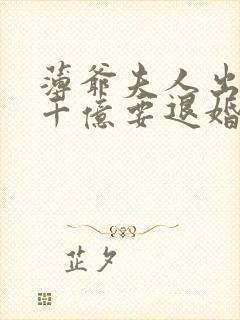 薄爷夫人出
十億要退婚
芷夕